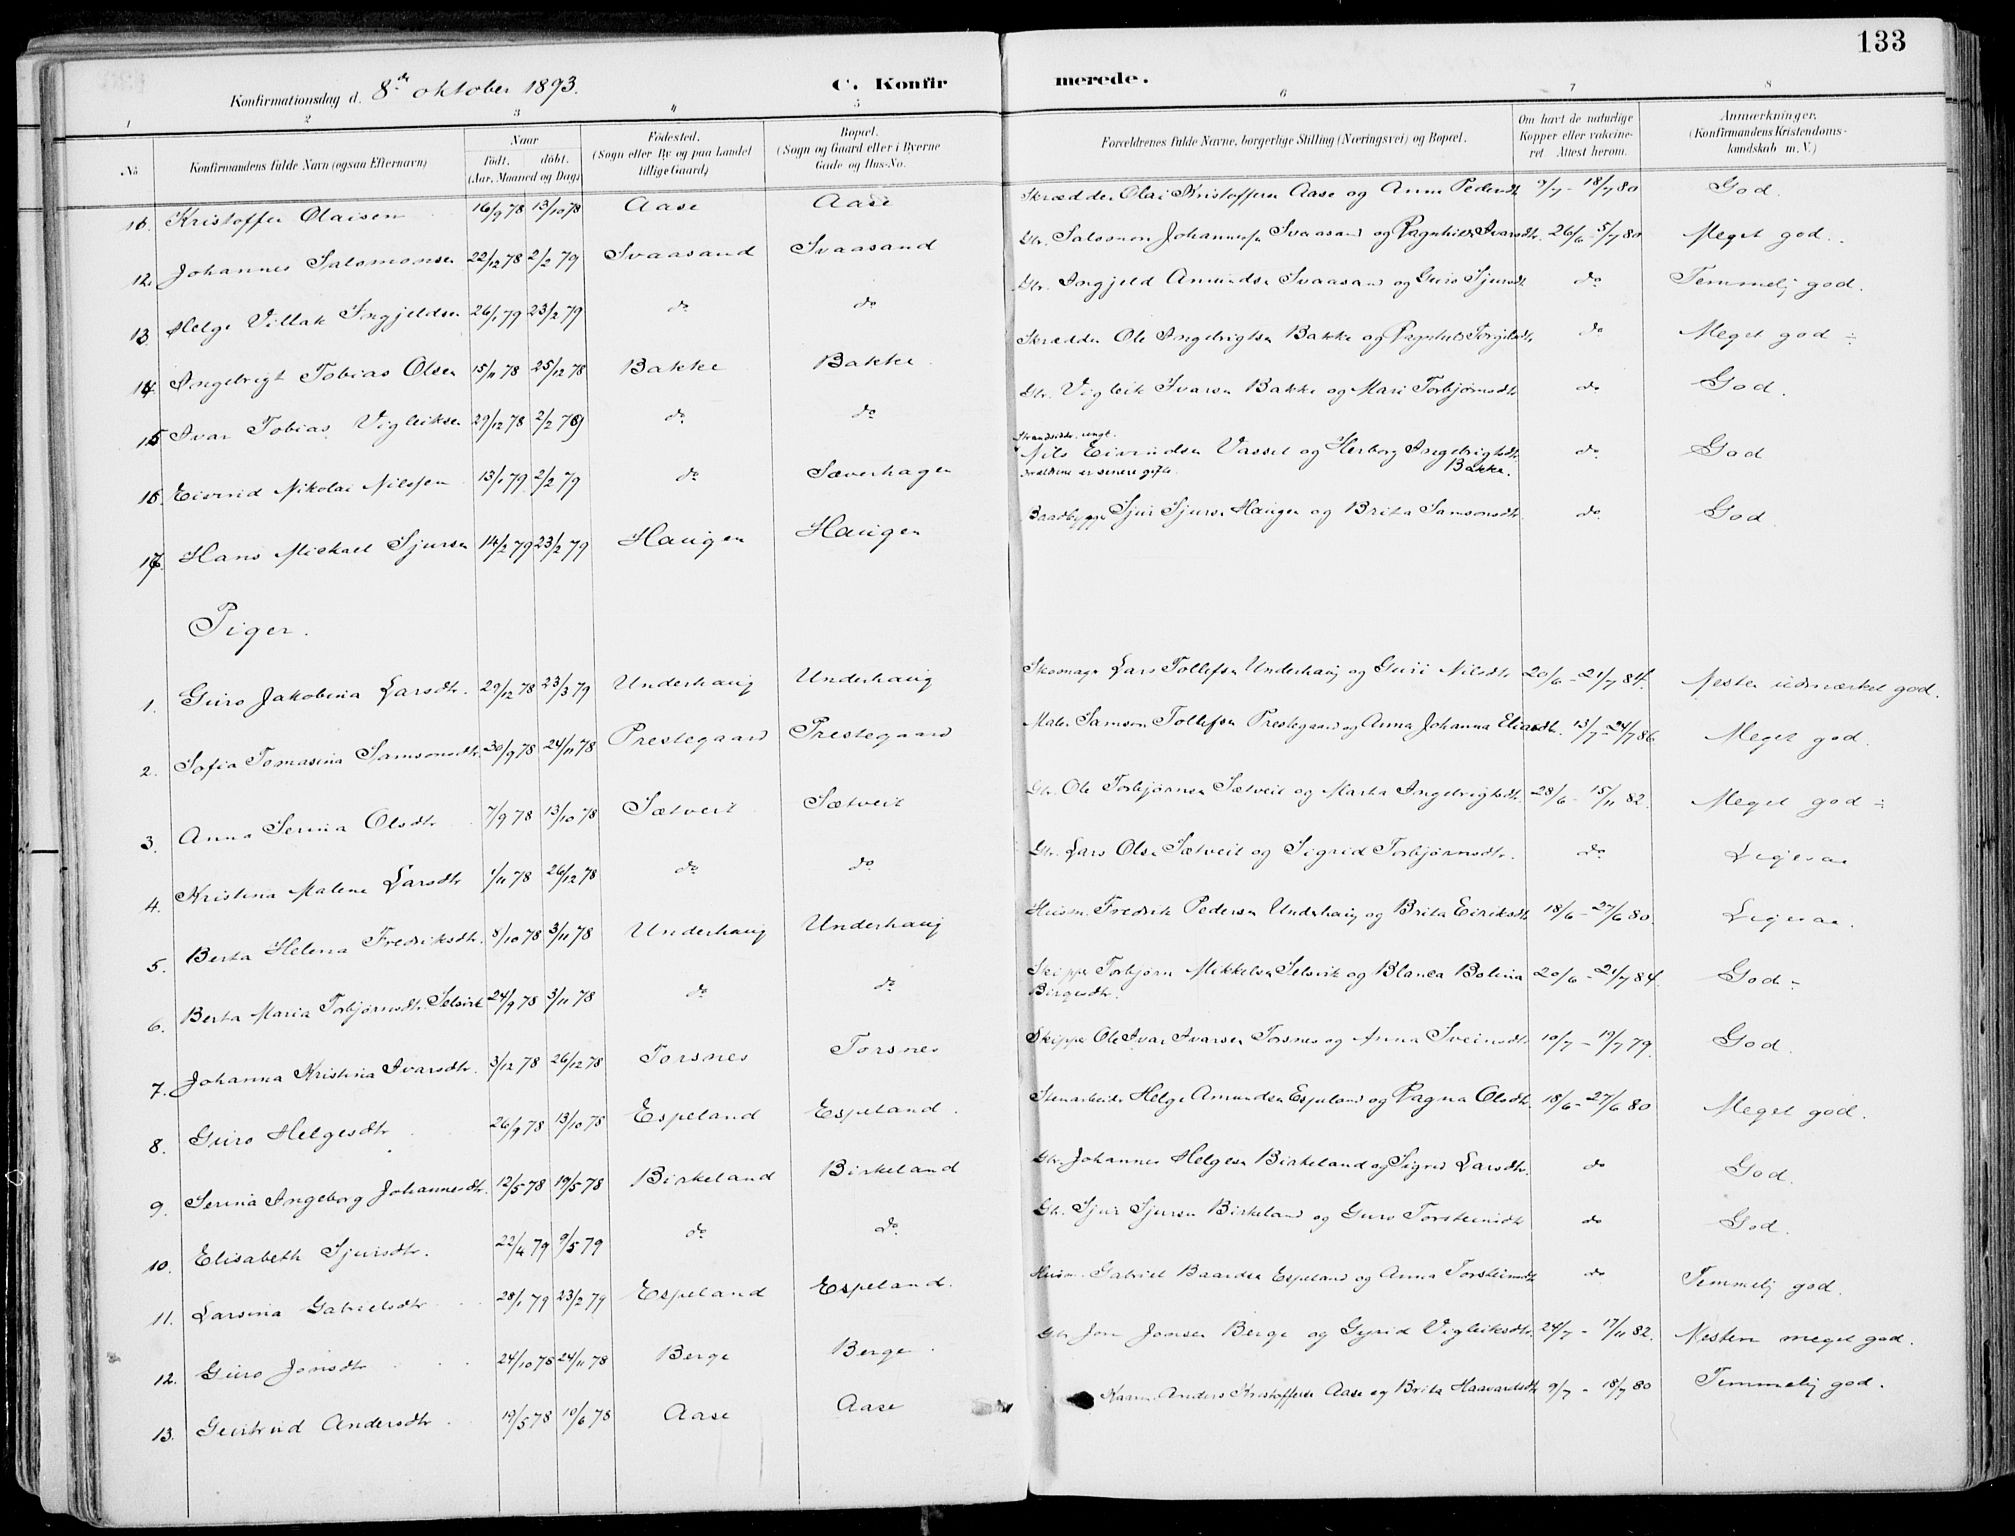 133
Konfirmationsdag d. 8de oktober 1893. C. Konfirmerede.
1 2 3 4 5 6 7 8
No. Konfirmandens fulde Navn (ogsaa Efternavn) Naar født. døbt. (Aar, Maaned og Dag) Fødested. (Sogn eller By og paa Landet tillige Gaard) Bopæl. (Sogn og Gaard eller i Byerne Gade og Hus-No. Forældrenes fulde Navne, borgerlige Stilling (Næringsvei) og Bopæl. Om havt de naturlige Kopper eller vakcineret. Attest herom. Anmærkninger. (Konfirmandens Kristendomskundskab m. V.)
Kristoffer Olaisen 16/9 78 13/10 78 Aase Aase Skrædder Olai Kristoffersen Aase og Anna Pedersdtr 9/7 - 18/7 80 God.
12. Johannes Salomonsen 22/12 78 2/2 79 Svaasand Svaasand Gbr. Salomon Johannesen Svaasand og Ragnhild Ivarsdtr. 26/6 - 5/7 80 Meget god.
13 Helge Villak Ingjeldsen 26/1 79 23/2 79 do do Gbr. Ingjeld Amundsen Svaasand og Guro Sjursdtr do Temmelig god.
14. Angelrigt Tobias Olsen 15/11 78 25/12 78 Bakke Bakke Skrædder Ole Angelrigtsen Bakke og Ragnhild Torgilsdtr do Meget god ÷
15 Ivar Tobias Vigleiksen 29/12 78 2/2 79 do do Gbr. Vigleik Ivarsen Bakke og Mari Torbjørnsdtr do God.
16. Eivind Nikolai Nilssen 13/1 79 2/2 79 do Sæverhagen Strandsidder, ungk. Nils Eivindsen Vasset og Herborg Angelrigtsdtr Bakke. Forældrene er senere gifte. do God
17. Hans Mickael Sjursen 14/2 79 23/2 79 Haugen Haugen Baadbygger Sjur Sjursen Haugen og Brita Samsonsdtr. do God
Piger.
1. Guro Jakobina Larsdtr. 29/12 78 23/3 79 Underhaug Underhaug Skomager Lars Tollefsen Underhaug og Guri Nilsdtr 20/6 - 21/7 84. Nesten udmærket god.
2. Sofia Tomasina Samsonsdtr. 30/9 78 24/11 78 Prestegaard Prestegaard Maler Samson Tollefsen Prestegaard og Anna Johanna Eliasdtr. 13/7 - 24/7 86 Meget god.
3. Anna Serina Olsdtr 7/9 78 13/10 78 Sætveit Sætveit Gbr. Ole Torbjørnsen Sætveit og Marta Angelrigtsdtr. 28/6 - 15/11 82. Meget god ÷
4. Kristina Malene Larsdtr 1/11 78 26/12 78 do do Gbr. Lars Olsen Sætveit og Sigrid Torbjørnsdtr. do Ligesaa
5. Berta Helena Fredriksdtr. 8/10 78 3/11 78 Underhaug Underhaug Husm. Fredrik Pedersen Underhaug og Brita Eiriksdtr 18/6 - 27/6 80. Ligesaa.
6. Berta Maria Torbjørnsdtr. Selsvik 24/9 78 3/11 78 do do Skipper Torbjørn Mikkelsen Selsvik og Blanca Bolena Birgesdtr. 20/6 - 21/7 84. God ÷
7. Johanna Kristina Ivarsdtr. 3/12 78 26/12 78 Torsnes Torsnes Skipper Ole Ivar Ivarsen Torsnes og Anna Sveinsdtr 10/7 - 19/7 79. God.
8. Guro Helgesdtr 26/9 78 13/10 78 Espeland Espeland. Stenarbeider Helge Amundsen Espeland og Ragna Olsdtr. 18/6 - 27/6 80 Meget god.
9. Serina Ingeborg Johannesdtr. 12/5 78 19/5 78 Birkeland Birkeland Gbr. Johannes Helgesen Birkeland og Sigrid Larsdtr. do God.
10. Elisabeth Sjursdtr. 22/4 79 9/5 79 do do. Gbr. Sjur Sjursen Birkeland og Guro Torsteinsdtr do God.
11. Larsina Gabrielsdtr 28/1 79 23/2 79 Espeland Espeland. Husm. Gabriel Baardsen Espeland og Anna Torsteinsdtr do Temmelig god.
12. Guro Jonsdtr 24/10 78 24/11 78 Berge Berge. Gbr Jon Jonsen Berge og Gyrid Vigleiksdtr. 24/7 - 17/11 82. Nesten meget god.
13. Geirtrud Andersdtr 19/5 78 10/6 78 Aase Aase Kaarm. Anders Kristoffersen Aase og Brita Haavardsdtr 9/7 - 18/7 80 Temmelig god.